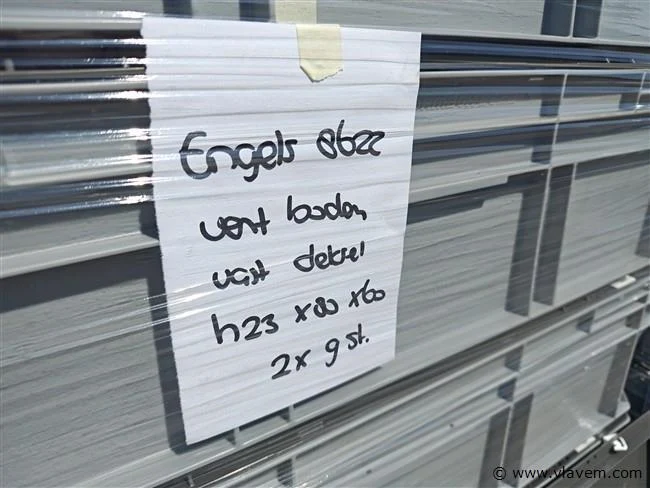 Engels 8622
vent bodem
vast deksel
h23 x80 x60
2x 9 st.
© www.vlavem.com